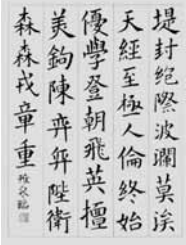 堤封絕際波瀾莫涘
天經至極人倫終始
優學登朝飛英擅
美鉤陳弈弈陛衛
森森戎章重